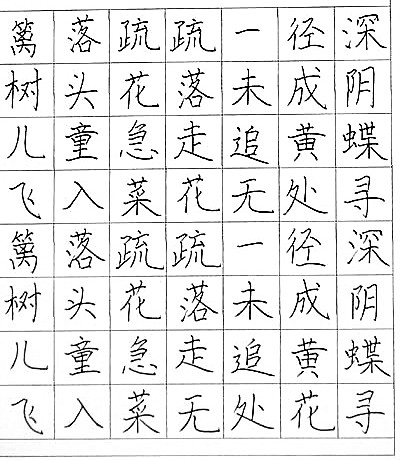 篱落疏疏一径深
树头花落未成阴
儿童急走追黄蝶
飞入菜花无处寻
篱落疏疏一径深
树头花落未成阴
儿童急走追黄蝶
飞入菜无处花寻